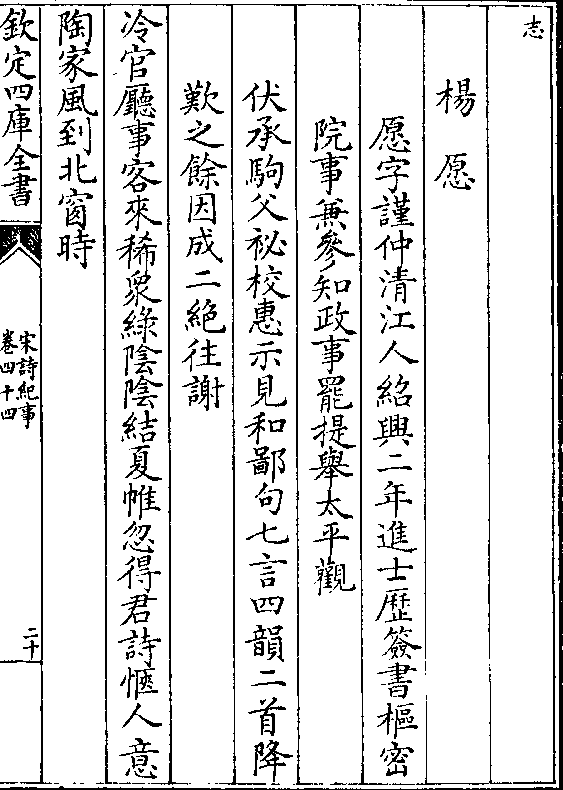 志
楊愿
愿字謹仲清江人紹興二年進士歴簽書樞密
院事兼參知政事罷提舉太平觀
伏承駒父祕校惠示見和鄙句七言四韻二首降
歎之餘因成二絶往謝
冷官廳事客來稀衆綠陰陰結夏帷忽得君詩愜人意
陶家風到北窗時
欽定四庫全書
宋詩紀事
卷四十四
二十